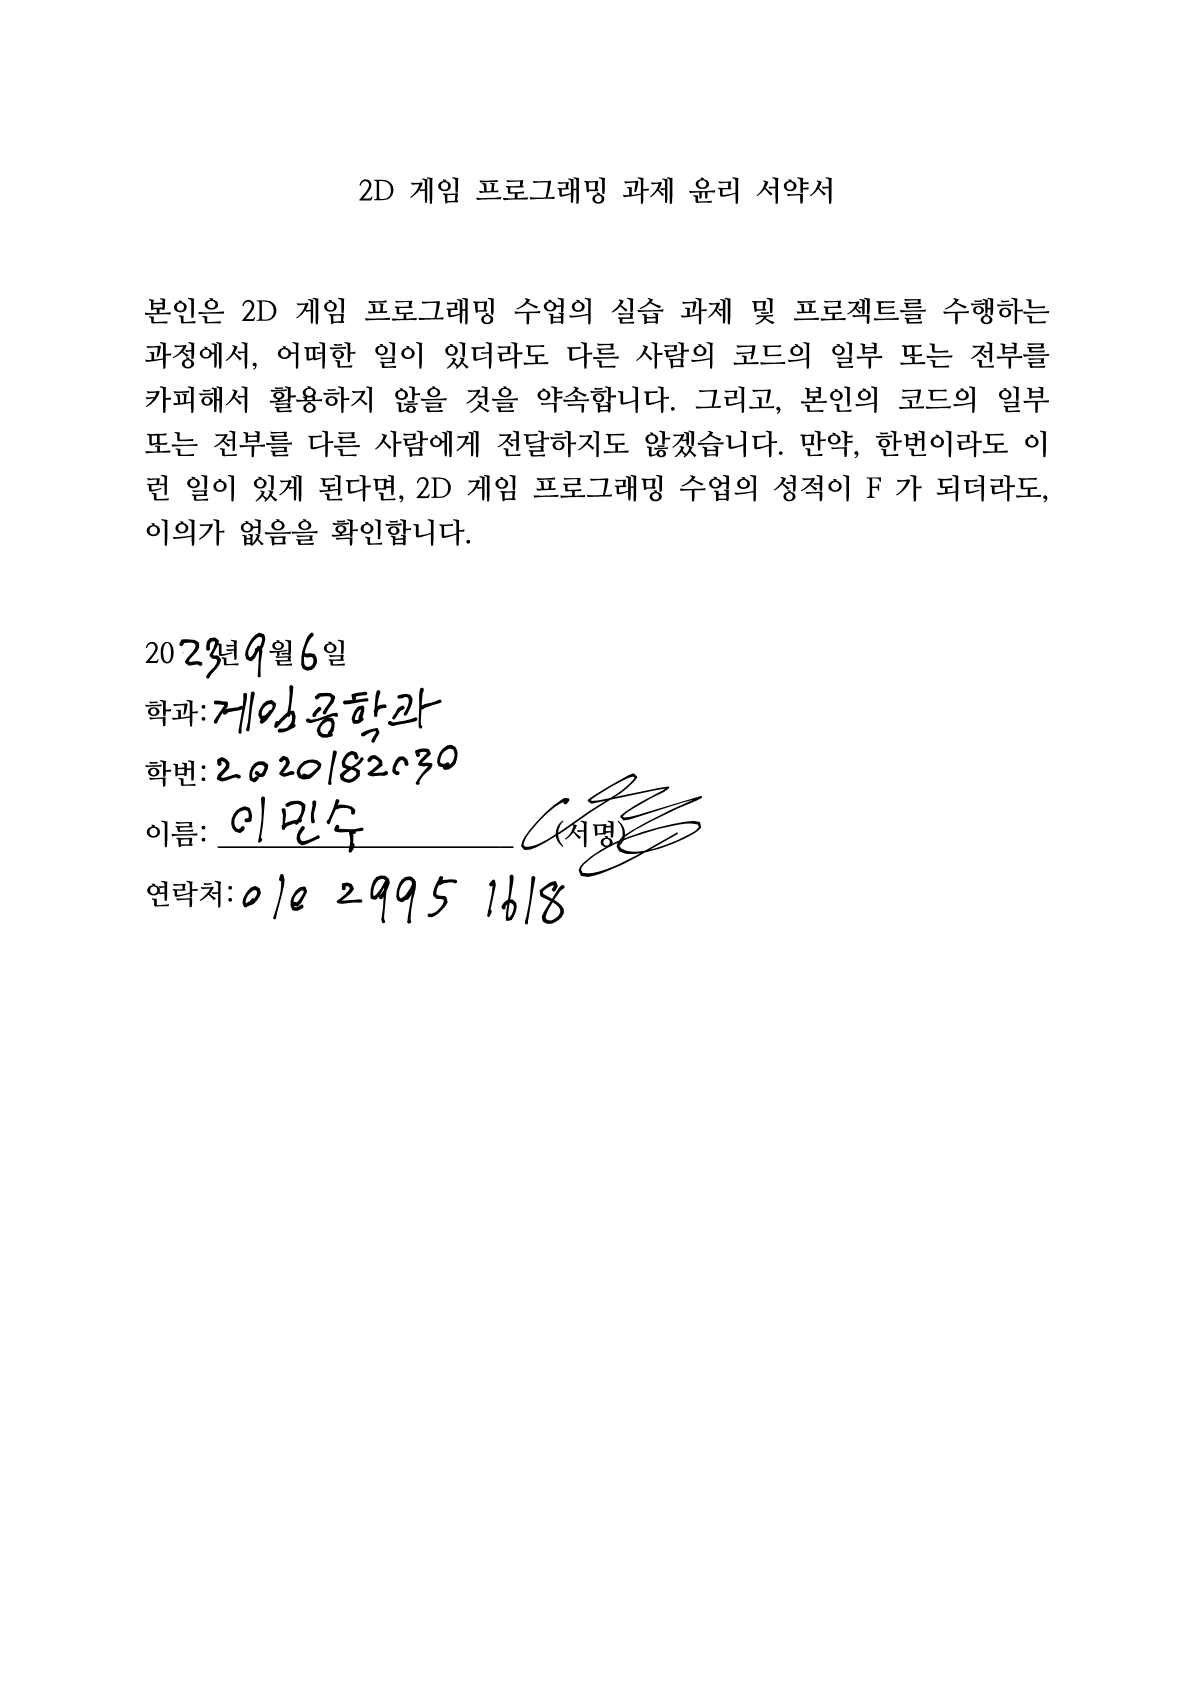 2D 게임 프로그래밍 과제 윤리 서약서
본인은 2D 게임 프로그래밍 수업의 실습 과제 및 프로젝트를 수행하는
과정에서, 어떠한 일이 있더라도 다른 사람의 코드의 일부 또는 전부를
카피해서 활용하지 않을 것을 약속합니다. 그리고, 본인의 코드의 일부
또는 전부를 다른 사람에게 전달하지도 않겠습니다. 만약, 한번이라도 이
런 일이 있게 된다면, 2D 게임 프로그래밍 수업의 성적이 F 가 되더라도,
이의가 없음을 확인합니다.
2023년 9월 6일
학과: 게임공학과
학번: 2020182030
이름: 이민수 (서명)
연락처: 010 2995 1618